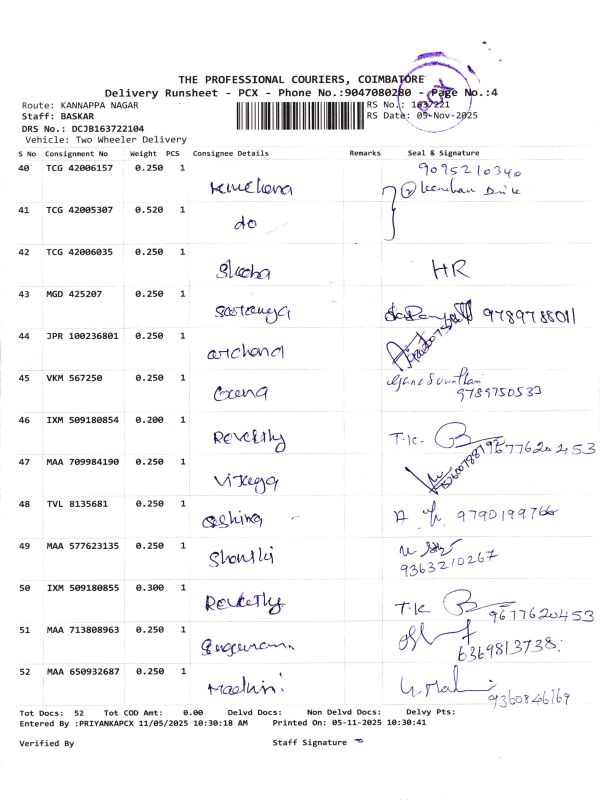 THE PROFESSIONAL COURIERS, COIMBATORE
Delivery Runsheet - PCX - Phone No.:9047080280 - Page No.:4
PCX
Route: KANNAPPA NAGAR RS No.: 1637221
Staff: BASKAR RS Date: 05-Nov-2025
DRS No.: DCJB163722104
Vehicle: Two Wheeler Delivery
S No Consignment No Weight PCS Consignee Details Remarks Seal & Signature
40 TCG 42006157 0.250 1 9095210340
41 TCG 42005307 0.520 1 do
42 TCG 42006035 0.250 1 HR
43 MGD 425207 0.250 1 9789788011
44 JPR 100236801 0.250 1 archana
45 VKM 567250 0.250 1 9789750533
46 IXM 509180854 0.200 1 T.K. 9677620453
47 MAA 709984190 0.250 1 Vijaya
48 TVL 8135681 0.250 1 9790199766
49 MAA 577623135 0.250 1 9363210267
50 IXM 509180855 0.300 1 T.K 9677620453
51 MAA 713808963 0.250 1 6369813738
52 MAA 650932687 0.250 1 9360846169
Tot Docs: 52 Tot COD Amt: 0.00 Delvd Docs: Non Delvd Docs: Delvy Pts:
Entered By :PRIYANKAPCX 11/05/2025 10:30:18 AM Printed On: 05-11-2025 10:30:41
Verified By Staff Signature